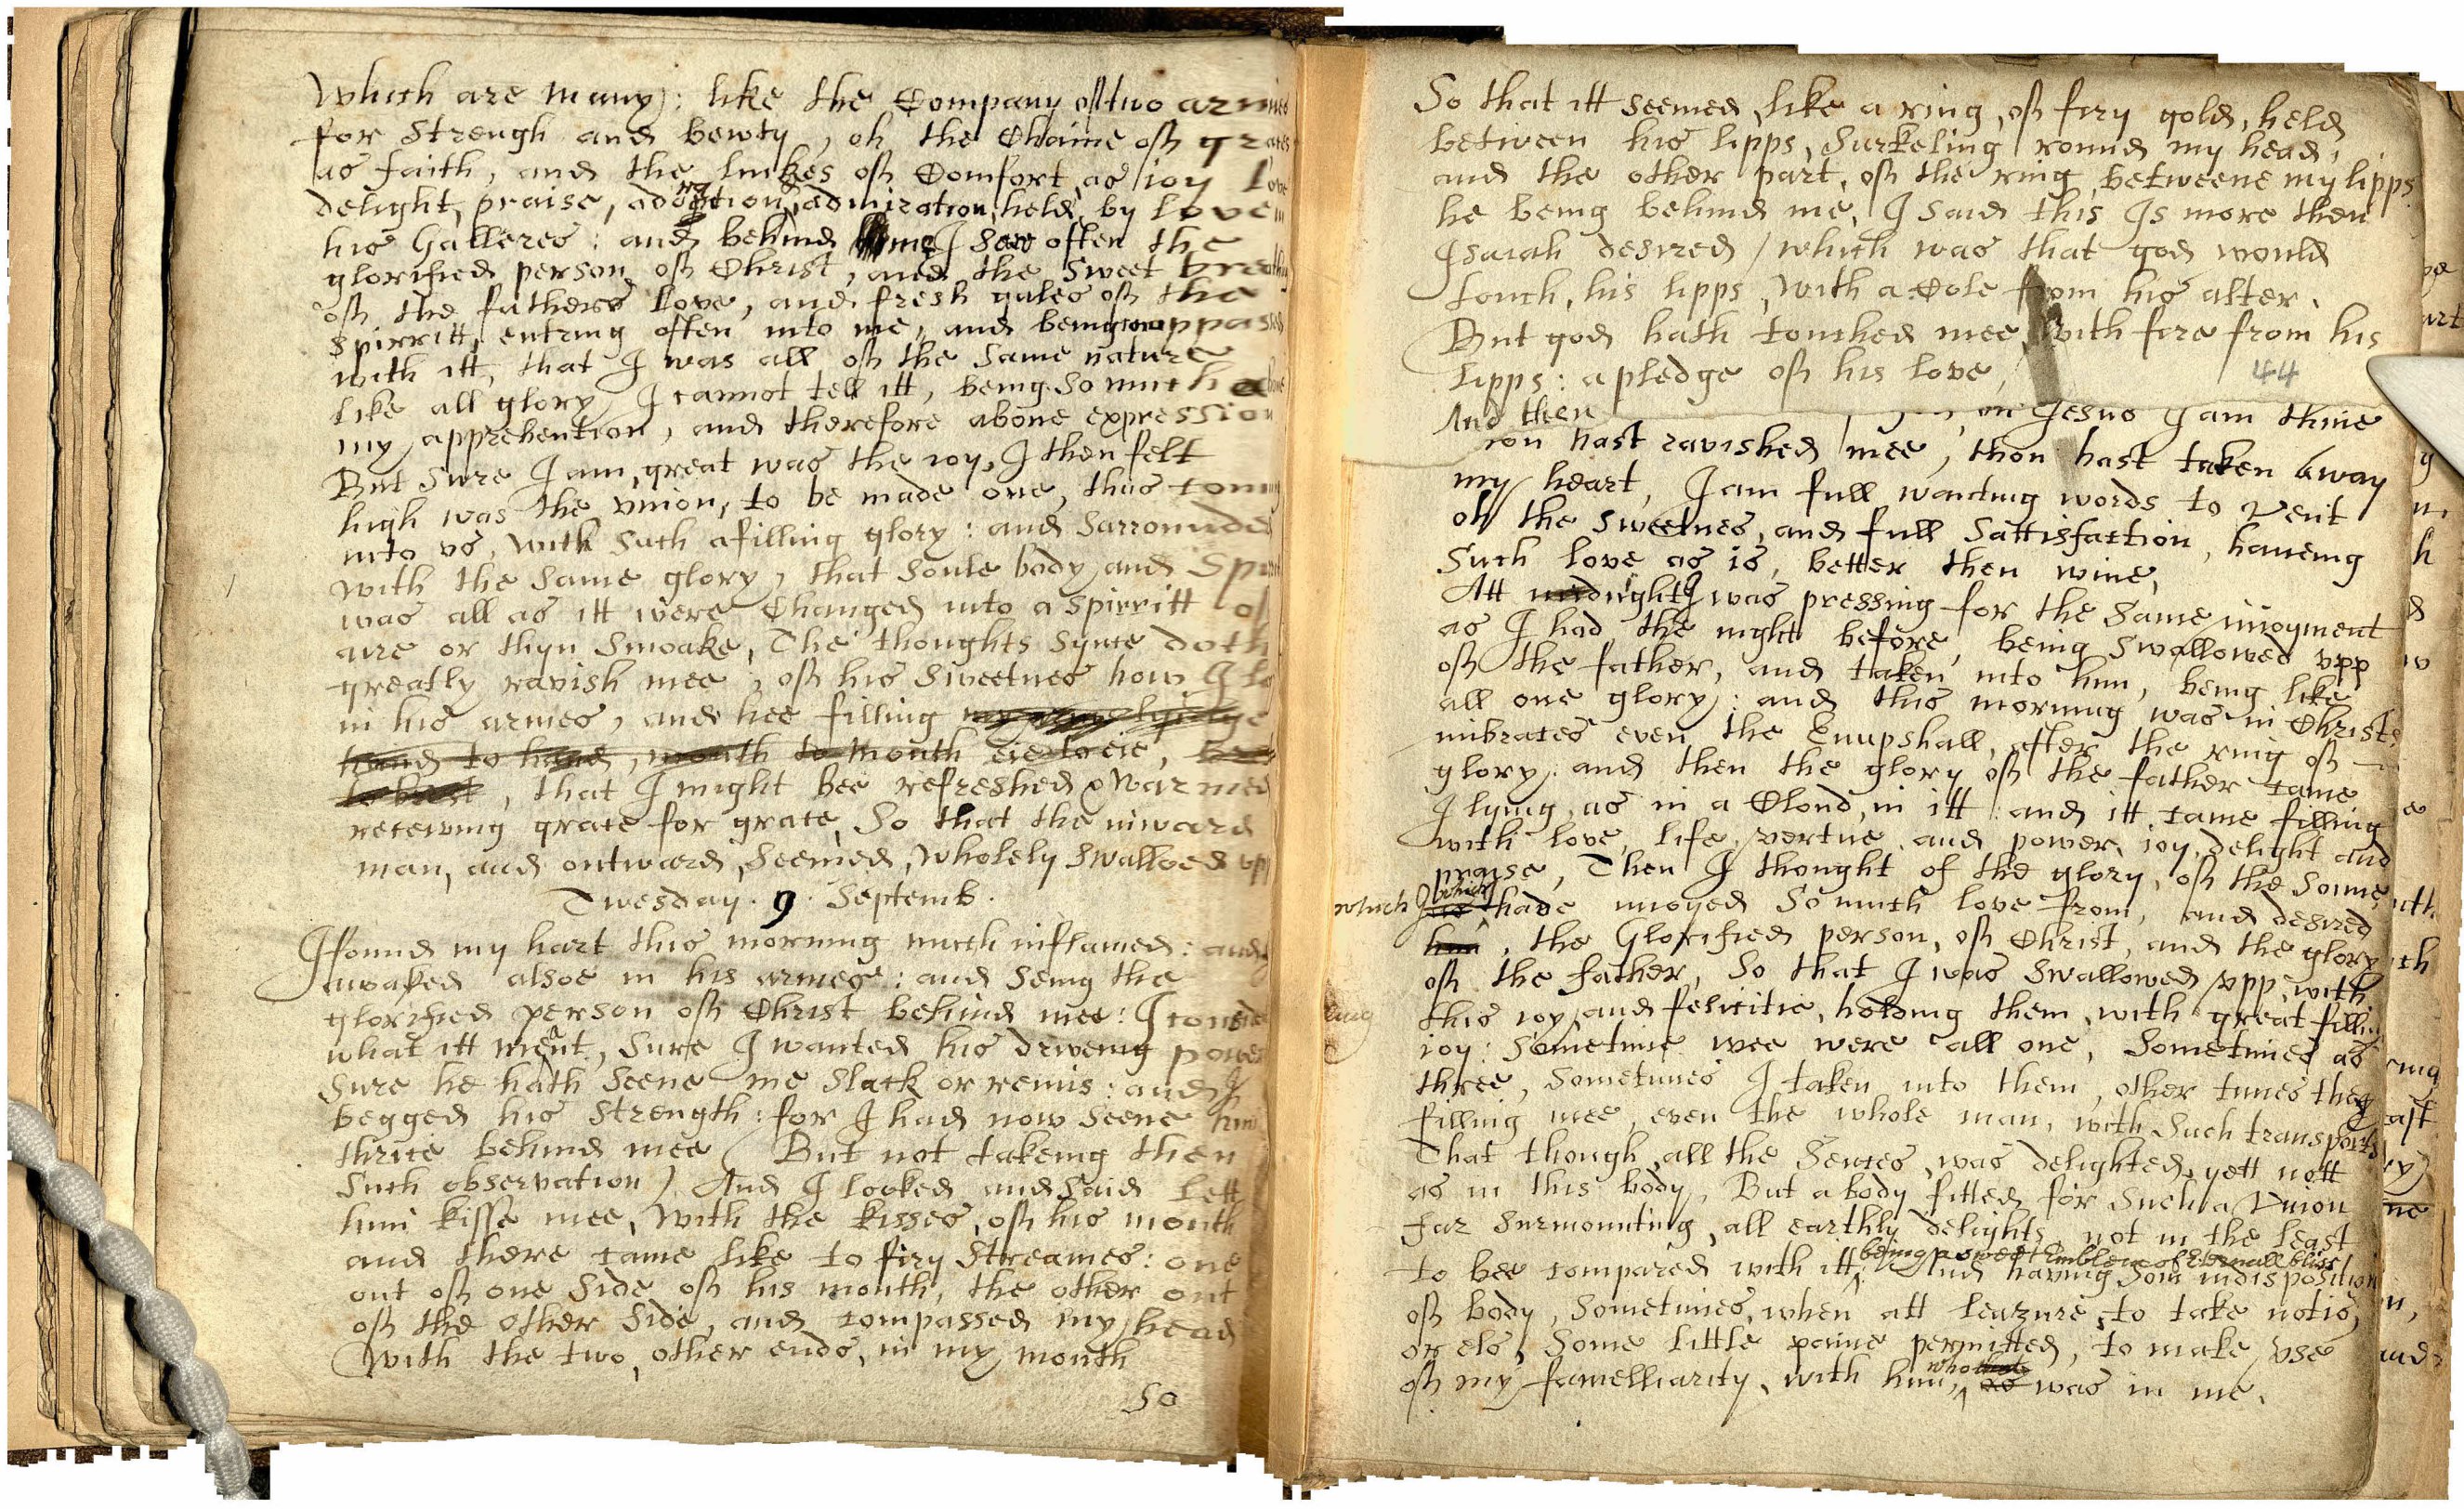 Which are many: like the Company off two armies
for Strengh and bewty, oh the Chaine off graces
as faith, and the linkes off Comfort, as ioy Love
delight, praise, adoration, admiration, held, by Love in
his Galleres: and behind me I saw often the
glorified person off Christ, and the Sweet breathing
off the fathers Love, and fresh gales off the
spirritt, entring often into me, and being compassed
with itt, that I was all off the Same nature
like all glory, I cannot tell itt, being So much above
my apprehention, and therefore aboue expression
But Sure I am, great was the ioy, I then felt
high was the vnion, to be made one, thus coming
into vs, with Such a filling glory: and Sarrounded
with the Same glory, that Soule body and Spirritt
was all as itt were Changed into a spirritt of
aire or thyn Smoake, The thoughts Synce doth
greatly ravish mee, off his Sweetnes how I lay
in his armes, and hee filling
hand to hand, mouth to mouth eie to eie,
to brest, that I might bee refreshed & Warmed
receiving grace for grace, So that the inward
man, and outward, Seemed, wholely Swalloed vp
Twesday. 9. Septemb.
I found my hart this morning much inflamed: and I
awaked alsoe in his armes: and Seing the
glorified person off Christ behind mee: I
what itt ment, Sure I wanted his driveing power
Sure he hath Seene me Slack or remis: and I
begged his Strength: for I had now Seene him
thrice behind mee (But not takeing then
Such observation) And I looked and Said Lett
him kisse mee, With the kisses, off his mouth
and there came like to firy Streames: one
out off one Side off his mouth, the other out
off the other Side, and compassed my head
With the two, other ends, in my mouth
So
So that itt Seemed, like a ring, off firy gold, held
between his lipps, Surkeling round my head,
and the other part, off the ring, betweene my lipps
he being behind me, I Said this Is more then
Isaiah desired, which was that god would
touch, his lipps, With a Cole from his alter.
But god hath touched mee, with fire from his
lipps: a pledge off his love,
44
And then Jesus I am thine
hast ravished mee, thou hast taken away
my heart, I am full wanting words to Vent
oh the Sweetnes, and full Sattisfaction, haueing
Such love as is, better then wine,
Att midnight I was pressing for the Same inioyment
as I had the night before, being Swallowed vpp
off the father, and taken into him, being like
all one glory: and this morning was in Christs
imbraces even the Enupshall, after the ring off
glory: and then the glory off the father came
I lying, as in a Cloud, in itt: and itt came filling
with love, life, vertue, and power, ioy, delight and
praise, Then I thought of the glory, off the Sonne,
which I which hade inioyed So much love from, and desired
him, the Glorified person, off Christ, and the glory
off the father, So that I was Swallowed vpp, with
this ioy, and felicitie, holding them, with great filling
ioy: Sometime wee were all one, Sometimes as
three, Sometimes I taken into them, other times they
filling mee, even the whole man, with Such transports
That though, all the Sences, was delighted, yett nott
as in this body, But a body fitted for Such a Vnion
far Surmounting, all earthly delights, not in the least
being a sweet Emblem of Eternall bliss
to bee compared with itt, And having Som indisposition
off body, Sometimes, when att leazure, to take notis,
or els, Some little paine permitted, to make vse
off my famelliarity, with him, who as was in me.